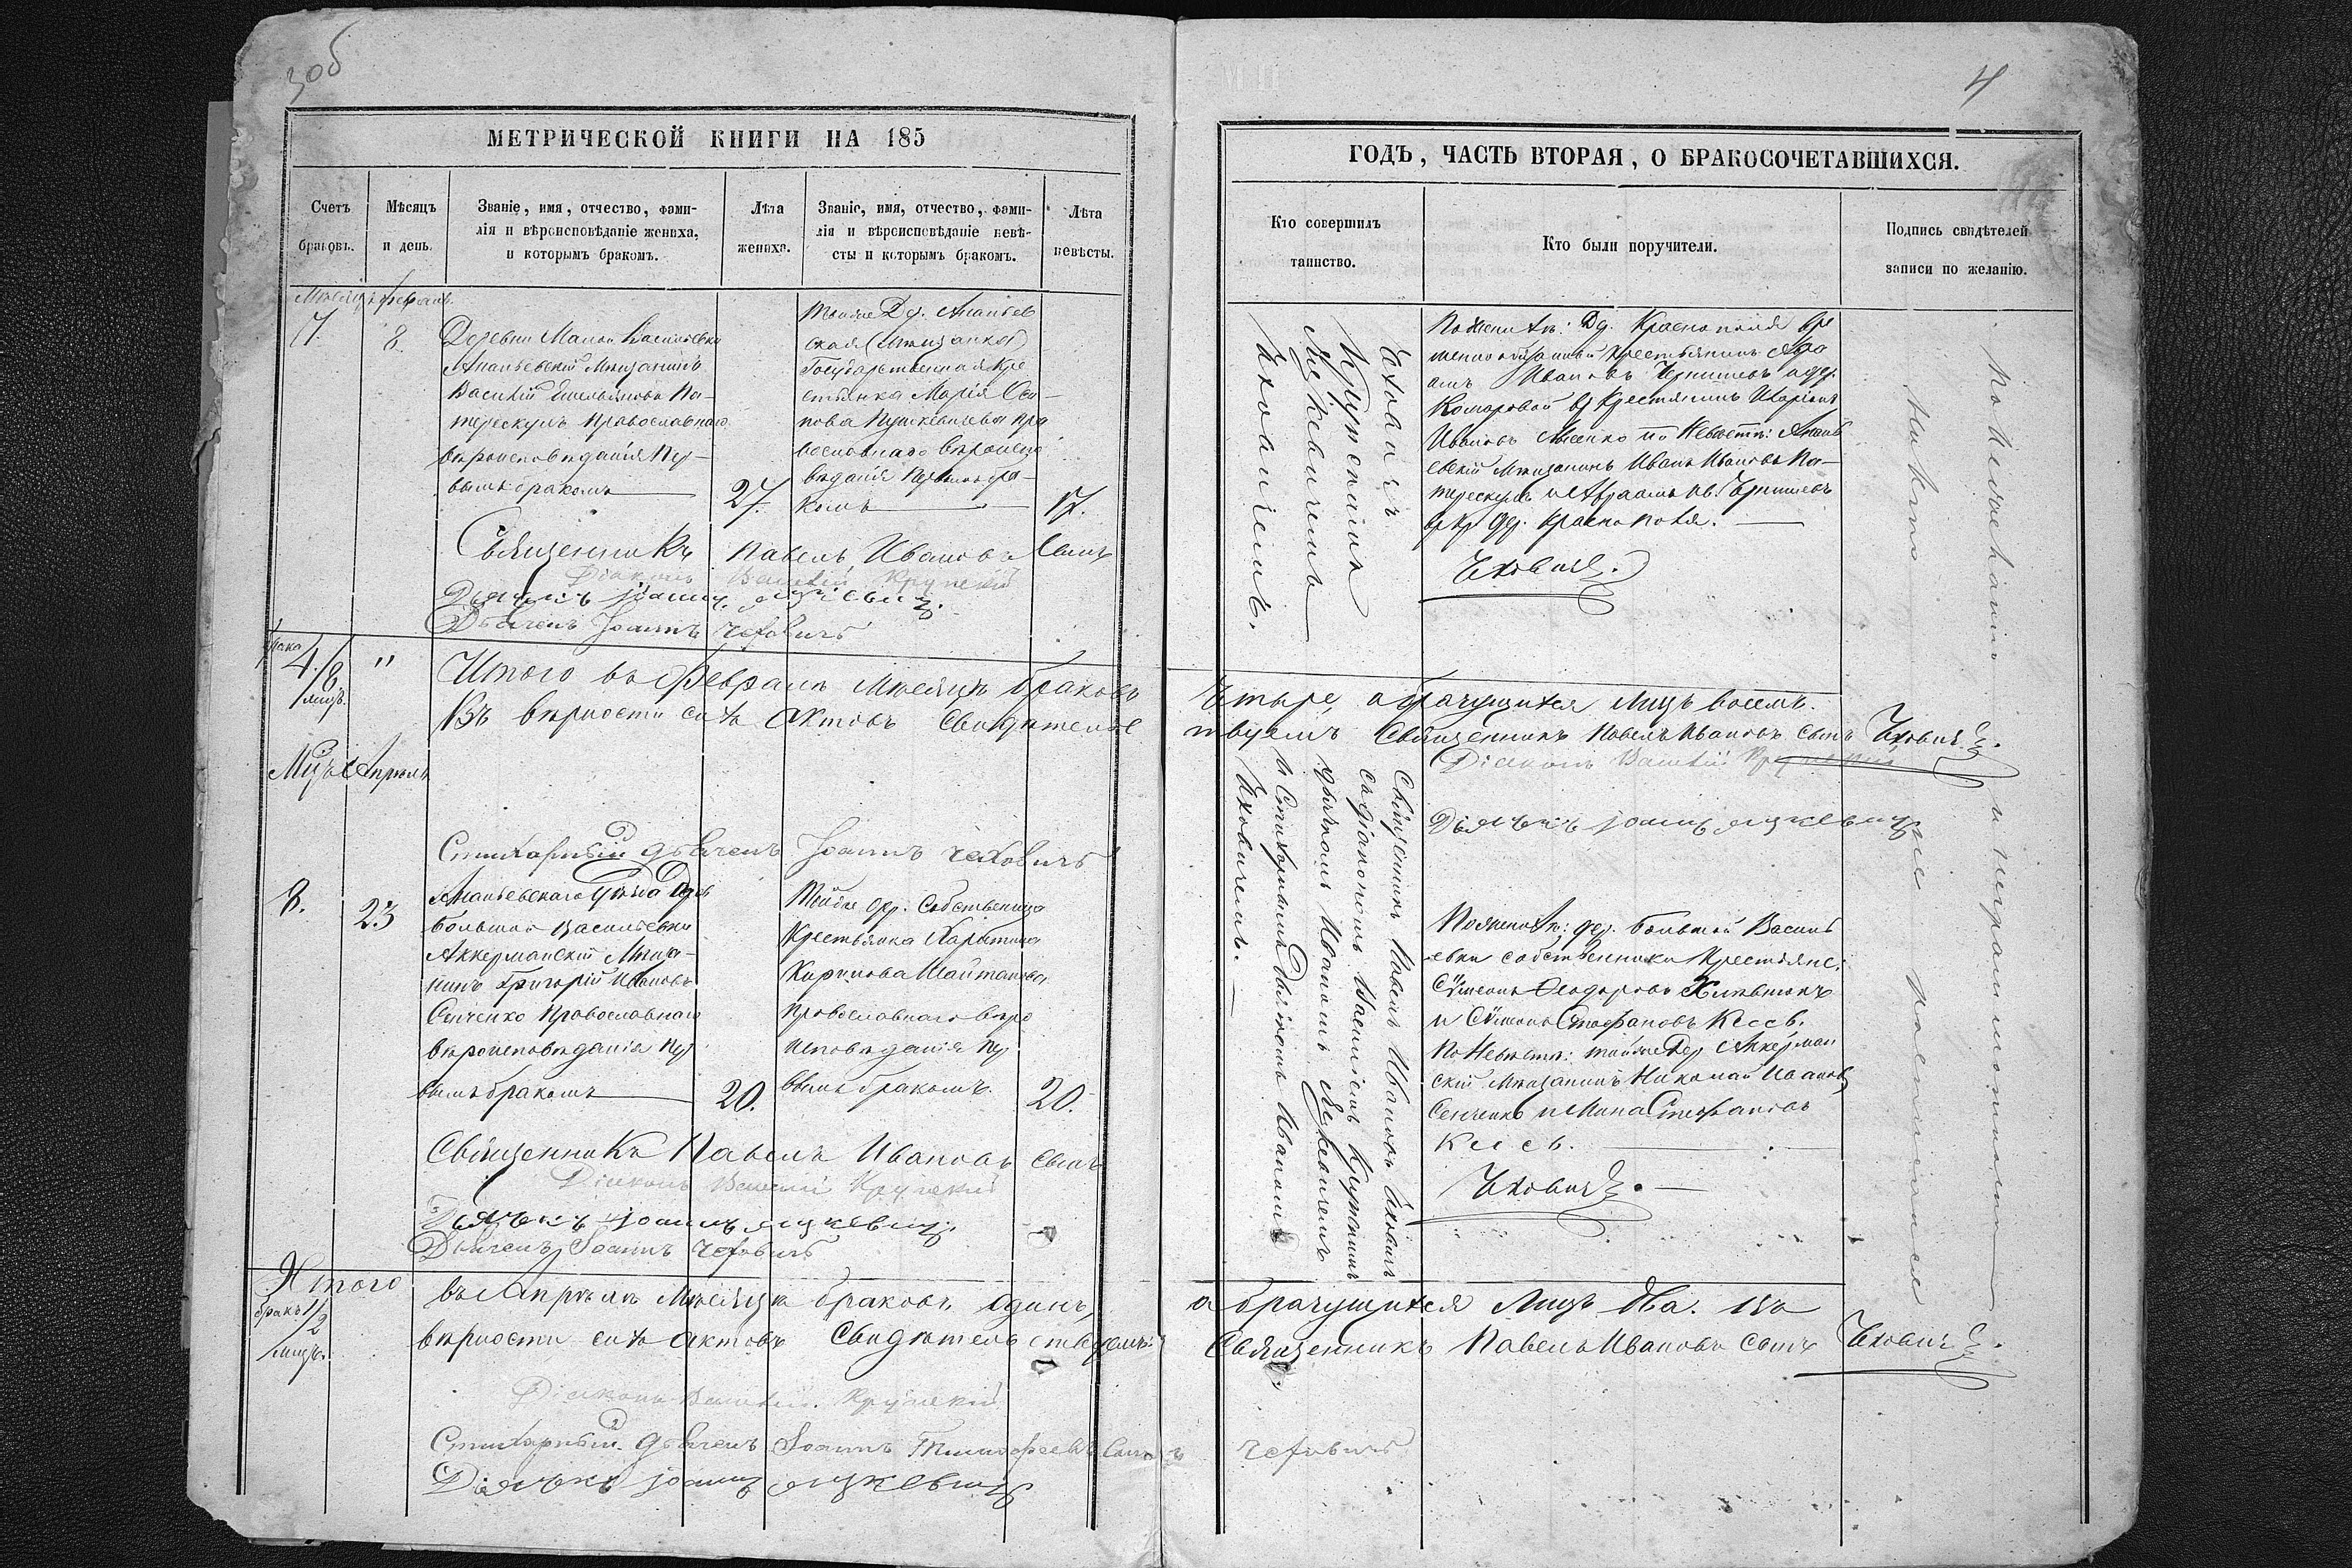 3об
МЕТРИЧЕСКОЙ КНИГИ НА 185
Счетъ браковъ.
Мѣсяцъ и день.
Званіе, имя, отчество, фами-
лія и вѣроисповѣданіе жениха,
и которымъ бракомъ.
Лѣта жениха.
Званіе, имя, отчество, фами-
лія и вѣроисповѣданіе невѣ-
сты и которымъ бракомъ.
Лѣта невѣсты.
Февраль
7.
8.
Деревни Малой Васильевки
Ананьевскій Мѣщанинъ
Василій Емельяновъ Па-
терескулъ Православнаго
вѣроисповѣданія Пер-
вымъ бракомъ
27.
Тойже Дер. Ананьев
ская (Мѣщанка)
Государственная Кре
стьянка Марія Оси-
пова Пушкевичева пра
вославнаго вѣроиспо
вѣданія первымъ бра-
комъ
17.
Священникъ Павелъ Ивановъ Сынъ
Діаконъ Василій Крупскій
Дьячекъ Іоаннъ Яцкевичъ.
Дьячекъ Іоаннъ Чеховичъ
4/8
лицъ.
"
Итого въ Февралѣ Мѣсяцѣ браковъ
Въ вѣрности сихъ актовъ Свидѣтельс
Мцъ Апрѣль
Стихарный дьячекъ Іоаннъ Чеховичъ
8.
23
Ананьевскаго Уѣзда Дер
большой Васильевки
Аккерманскій Мѣща-
нинъ Григорій Ивановъ
Сенченко Православнаго
вѣроисповѣданія Пер
вымъ бракомъ
20.
Тойже дер. Собственица
Крестьянка Харытина
Кирилова Шайтанова
православнаго вѣро
исповѣданія пер
вымъ бракомъ.
20.
Священникъ Павелъ Ивановъ Сынъ
Діаконъ Василій Крупскій
Дьячекъ Іоаннъ Яцкевичъ.
Дьячекъ Іоаннъ Чеховичъ
Итого
бракъ 1/2
лицъ.
въ Апрѣлѣ Мѣсяцѣ браковъ Одинъ,
вѣрности сихъ актовъ Свидѣтельствуемъ:
Діаконъ Василій Крупскій
Стихарный дьячекъ Іоаннъ Тимофеевъ Сынъ
Дьячекъ Іоаннъ Яцкевичъ
4
ГОДЪ, ЧАСТЬ ВТОРАЯ, О БРАКОСОЧЕТАВШИХСЯ.
Кто совершилъ
таинство.
Кто были поручители.
Подпись свидѣтелей
записи по желанію.
По Женихѣ: Дер. Краснополя вре
менно обязанный Крестьянинъ Авра
амъ Ивановъ Чернишевъ и дер.
Комаровой вр Крестянинъ Иларіонъ
Ивановъ Лысенко По Невѣстѣ: Анань
евскій Мѣщанинъ Иванъ Ивановъ Па-
терескулъ и Авраамъ Ив. Чернишевъ
вр Кр дер. Краснополя.
Чховичъ.
четыре, а брачущихся лицъ восемь.
твуемъ Священникъ Павелъ Ивановъ Сынъ Чховичъ.
Діаконъ Василій Крупскій
Дьячекъ Іоаннъ Яцкевичъ
Священникъ Павелъ Ивановъ Чховичъ
съ Діакономъ Василіемъ Крупскимъ
Дьячкомъ Иваномъ Яцкевичемъ
и Стихарнымъ Дьячкомъ Иваномъ
Чховичемъ.
По Женихѣ: дер. большой Василь
евки собственники Крестьяне:
Сѵмеонъ Ѳеодоровъ
и Сѵмеонъ Стефановъ Кесь.
По Невѣстѣ: тойже Дер Аккерман
скій мѣщанинъ Николай Ивановъ
Сенченко и Мина Стефановъ
Кесь.
Чховичъ.
По Незнанію и неграмотности
никто не
а брачущихся Лицъ два. Въ
Священникъ Павелъ Ивановъ Сынъ Чховичъ.
Чеховичъ